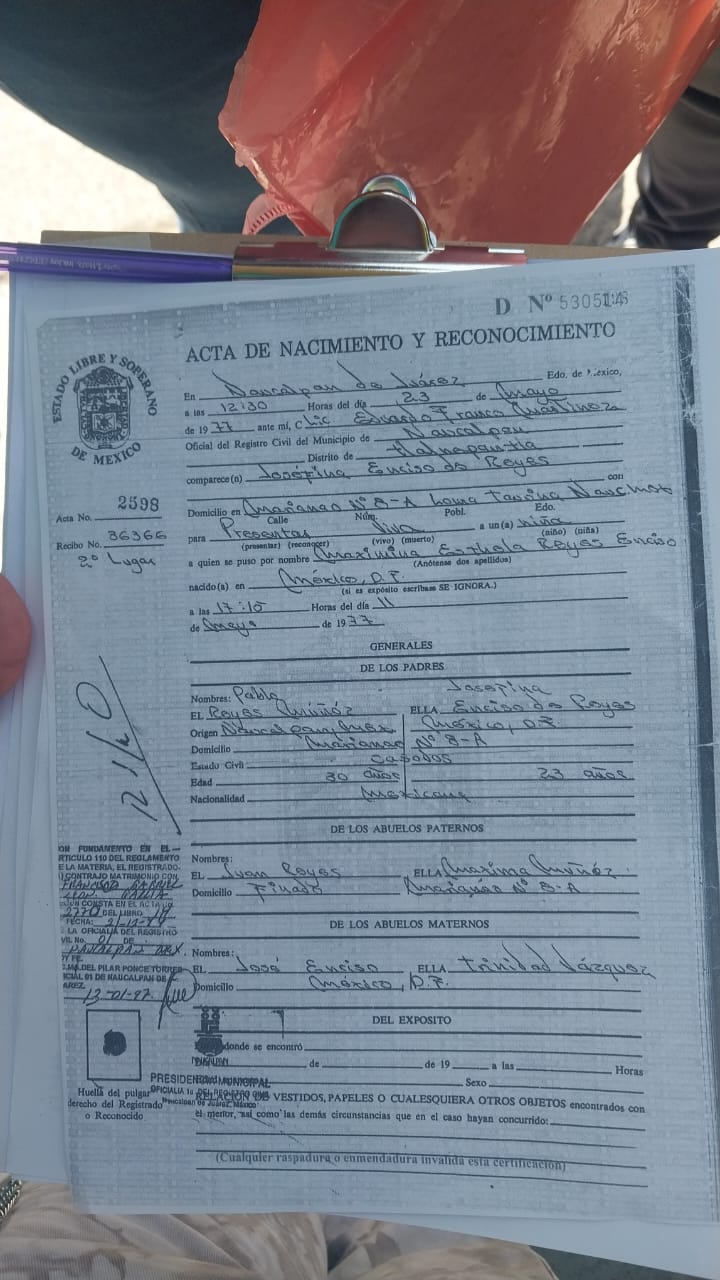 D Nº 5305143
ACTA DE NACIMIENTO Y RECONOCIMIENTO
ESTADO LIBRE Y SOBERANO
DE MEXICO
En Naucalpan de Juárez Edo. de México,
a las 12:30 Horas del día 23 de Mayo
de 1977 ante mí, C Lic. Eduardo Franco Martínez
Oficial del Registro Civil del Municipio de Naucalpan
Distrito de Tlalnepantla
comparece(n) Josefina Enciso de Reyes con
Acta No. 2598
Domicilio en Marianao Nº 8-A Loma
Calle Núm. Pobl. Edo.
Recibo No. 36366
para Presentar Viva a un(a) niña
(presentar) (reconocer) (vivo) (muerto) (niño) (niña)
2º Lugar
a quien se puso por nombre Maximina Reyes Enciso
(Anótense dos apellidos)
nacido(a) en México, D.F.
(si es expósito escríbase SE IGNORA.)
a las 17:10 Horas del día 11
de Mayo de 1977
GENERALES
DE LOS PADRES
Nombres: Pablo Josefina
EL Reyes Múñóz ELLA Enciso de Reyes
Origen México, D.F.
Domicilio Marianao Nº 8-A
Estado Civil Casados
Edad 30 años 23 años
Nacionalidad Mexicana
DE LOS ABUELOS PATERNOS
Nombres:
EL Juan Reyes ELLA Maxima Múñóz
Domicilio Finado Marianao Nº 8-A
DE LOS ABUELOS MATERNOS
Nombres:
EL José Enciso ELLA Trinidad Vázquez
Domicilio México, D.F.
ON FUNDAMENTO EN EL
RTICULO 110 DEL REGLAMENTO
E LA MATERIA, EL REGISTRADO
CONTRAJO MATRIMONIO CON
FRANCISCO GABRIEL
CONSTA EN EL ACTA
2770 DEL LIBRO
FECHA:
LA OFICIALIA DEL REGISTRO
VIL No. 01 DE
MA. DEL PILAR PONCE TORRES
ICIAL 01 DE NAUCALPAN DE
AREZ.
13-01-97
DEL EXPOSITO
donde se encontró
de de 19 a las Horas
Sexo
PRESIDENCIA MUNICIPAL
OFICIALIA
Naucalpan de Juárez, México
RELACION DE VESTIDOS, PAPELES O CUALESQUIERA OTROS OBJETOS encontrados con
el menor, así como las demás circunstancias que en el caso hayan concurrido:
Huella del pulgar
derecho del Registrado
o Reconocido
(Cualquier raspadura o enmendadura invalida esta certificación)